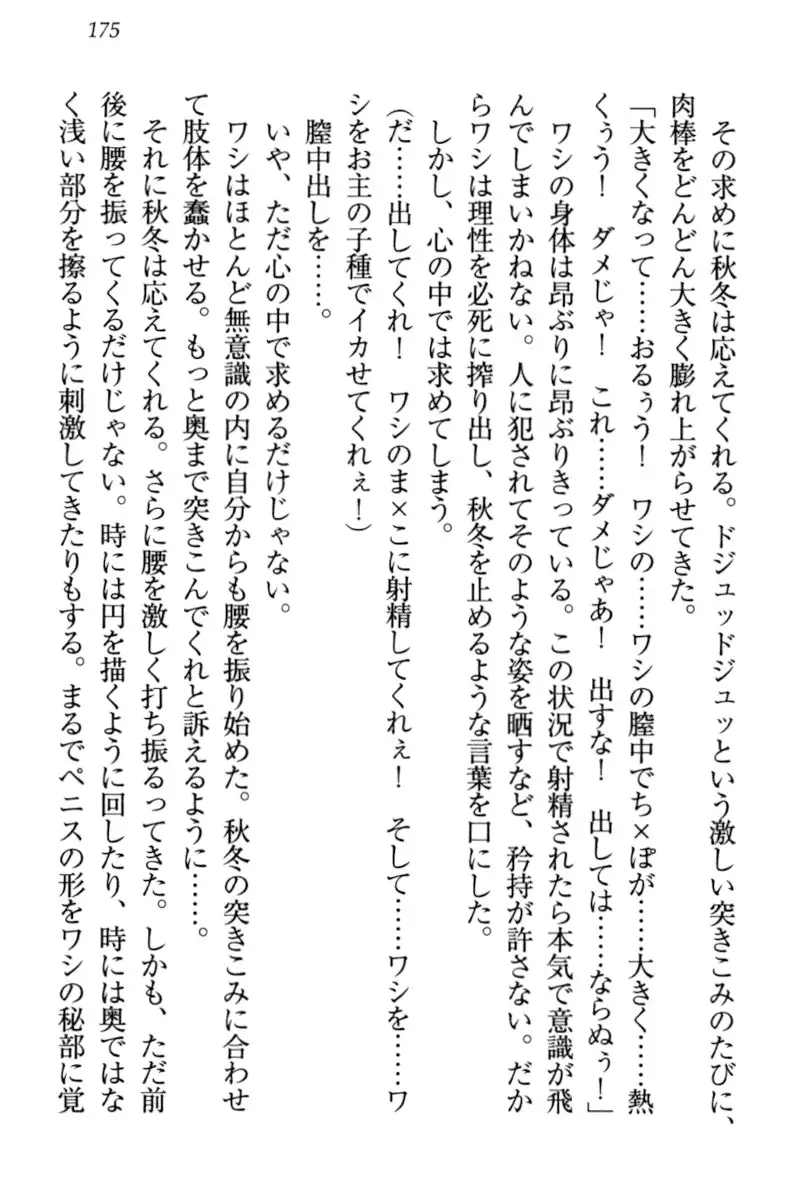 175
その求めに秋冬は応えてくれる。ドジュッドジュッという激しい突きこみのたびに、
肉棒をどんどん大きく膨れ上がらせてきた。
「大きくなって……おるぅう！　ワシの……ワシの膣中でち×ぽが……大きく……熱
くぅう！　ダメじゃ！　これ……ダメじゃあ！　出すな！　出しては……ならぬぅ！」
ワシの身体は昂ぶりに昂ぶりきっている。この状況で射精されたら本気で意識が飛
んでしまいかねない。人に犯されてそのような姿を晒すなど、矜持が許さない。だか
らワシは理性を必死に搾り出し、秋冬を止めるような言葉を口にした。
しかし、心の中では求めてしまう。
（だ……出してくれ！　ワシのま×こに射精してくれぇ！　そして……ワシを……ワ
シをお主の子種でイカせてくれぇ！）
膣中出しを……。
いや、ただ心の中で求めるだけじゃない。
ワシはほとんど無意識の内に自分からも腰を振り始めた。秋冬の突きこみに合わせ
て肢体を蠢かせる。もっと奥まで突きこんでくれと訴えるように……。
それに秋冬は応えてくれる。さらに腰を激しく打ち振るってきた。しかも、ただ前
後に腰を振ってくるだけじゃない。時には円を描くように回したり、時には奥ではな
く浅い部分を擦るように刺激してきたりもする。まるでペニスの形をワシの秘部に覚